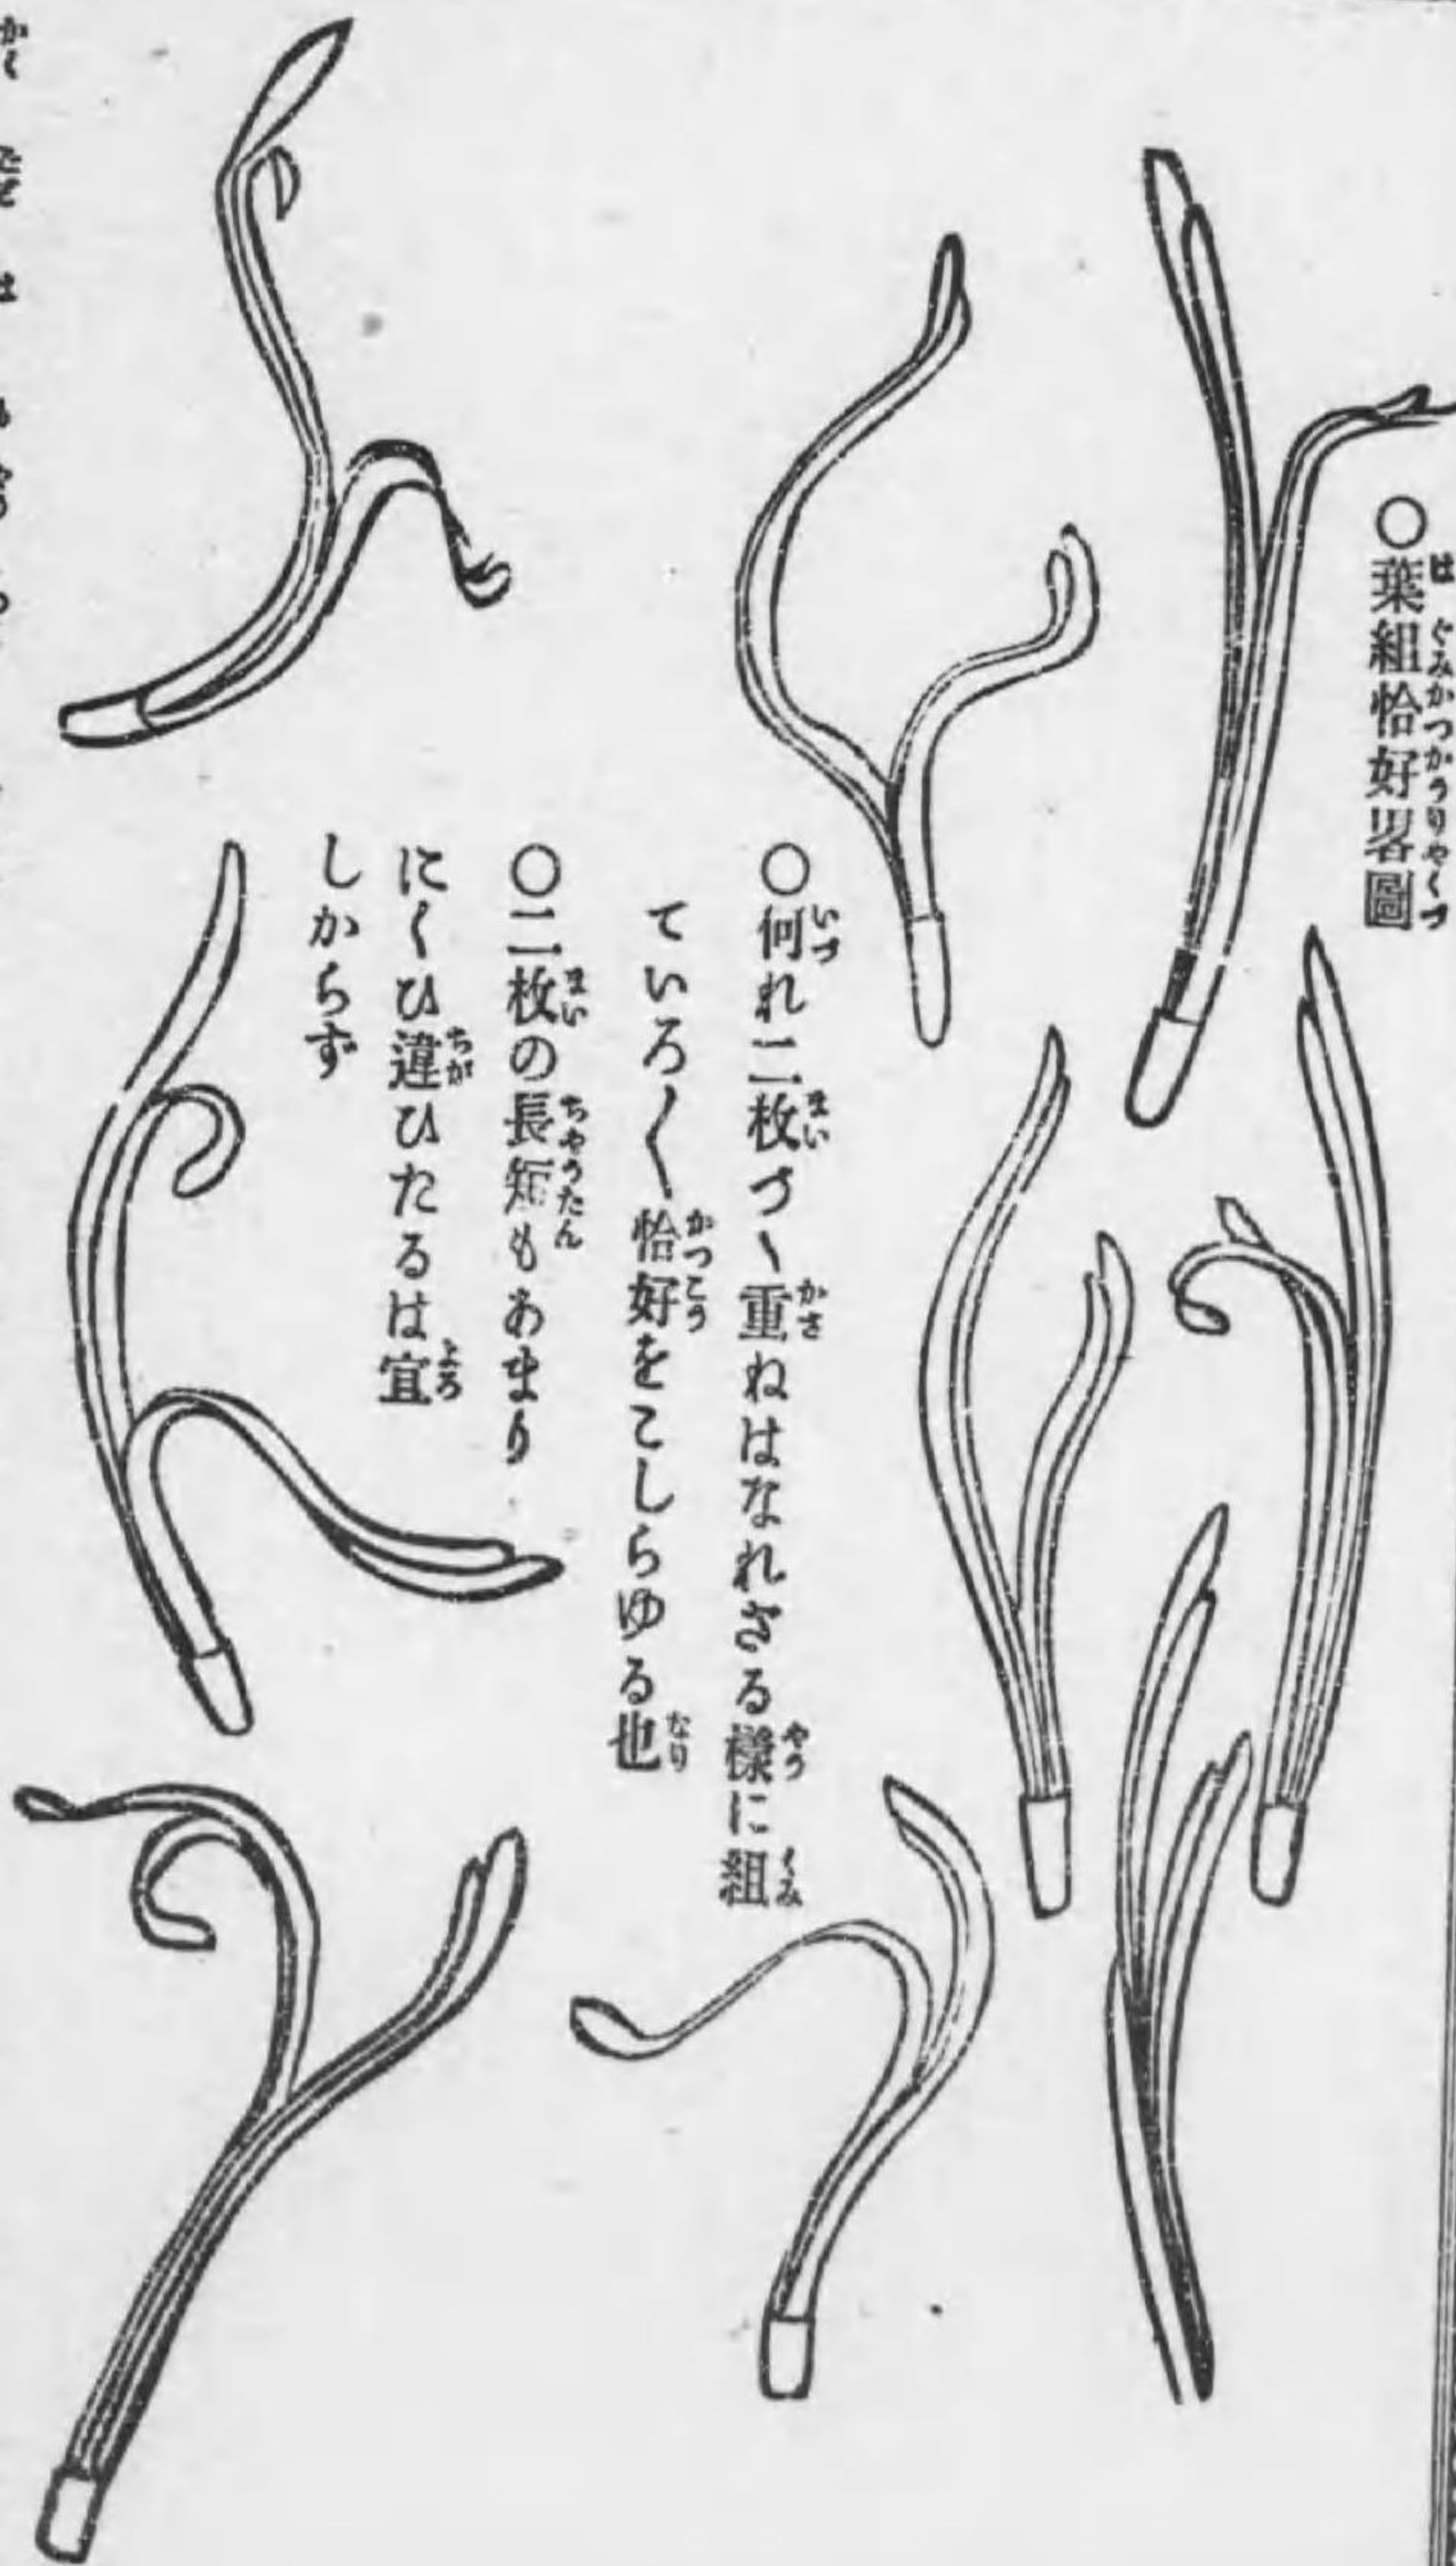 ○葉組恰好畧圖
○何れ二枚づゝ重ねはなれさる樣に組
ていろ〱恰好をこしらゆる也
○二枚の長短もあまり
にくひ違ひたるは宜
しからず